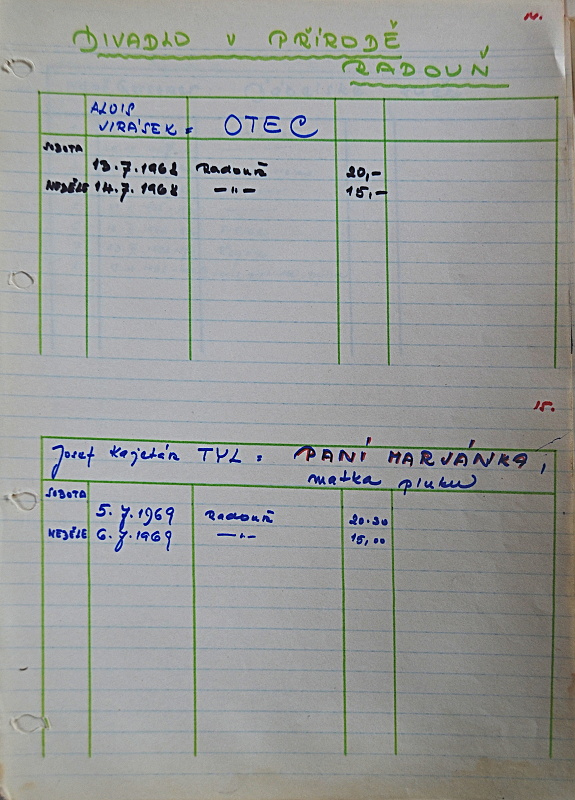 14.
DIVADLO V PŘÍRODĚ
RADOUŇ
ALOIS
JIRÁSEK = OTEC
SOBOTA
13.7.1968 Radouň 20,-
NEDĚLE 14.7.1968 —"— 15,-
15.
Josef Kajetán TYL = PANÍ MARJÁNKA,
matka pluku
SOBOTA
5.7.1969 Radouň 20.30
NEDĚLE 6.7.1969 —"— 15,00